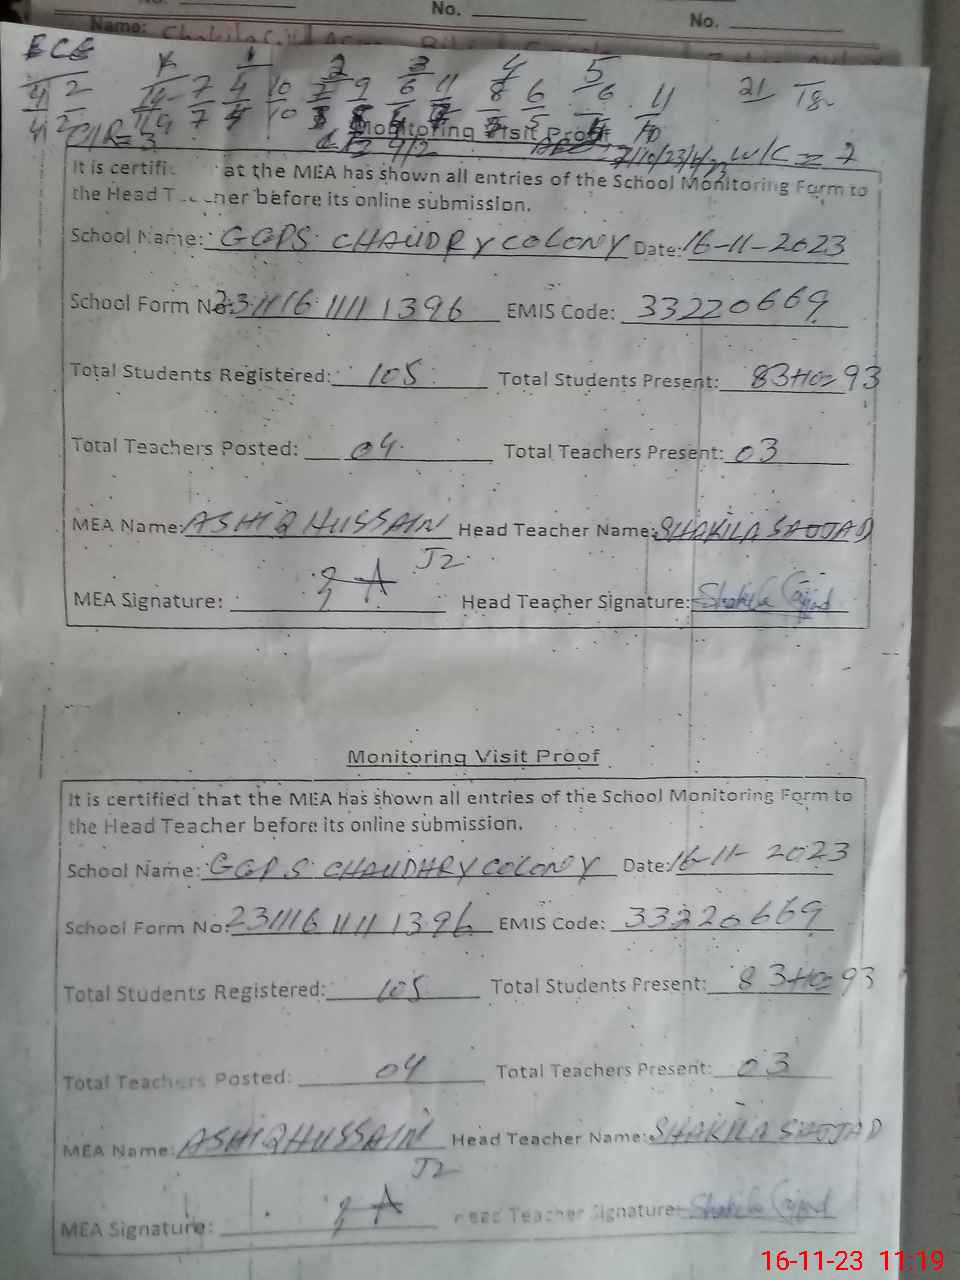 No. No.
Name:
ECE K 1 2 3 4 5
4 2 7 4 10 9 6 11 8 6 6 11 21
4 2 19 7 4 10
C/R=3 Monitoring Visit Proof W/C = 7
It is certifi at the MEA has shown all entries of the School Monitoring Form to
the Head T cher before its online submission.
School Name: GGPS CHAUDRY COLONY Date: 16-11-2023
School Form No: 231116 1111 1396 EMIS Code: 33220669
Total Students Registered: 105 Total Students Present: 83+10=93
Total Teachers Posted: 04 Total Teachers Present: 03
MEA Name: ASHIQ HUSSAIN Head Teacher Name: SHAKILA SAJJAD
J2
MEA Signature: Head Teacher Signature: Shakila Sajjad
Monitoring Visit Proof
It is certified that the MEA has shown all entries of the School Monitoring Form to
the Head Teacher before its online submission.
School Name: GGPS CHAUDHRY COLONY Date: 16-11-2023
School Form No: 231116 1111 1396 EMIS Code: 33220669
Total Students Registered: 105 Total Students Present: 83+10=93
Total Teachers Posted: 04 Total Teachers Present: 03
MEA Name: ASHIQ HUSSAIN Head Teacher Name: SHAKILA SAJJAD
J2
MEA Signature: Head Teacher Signature: Shakila Sajjad
16-11-23 11:19